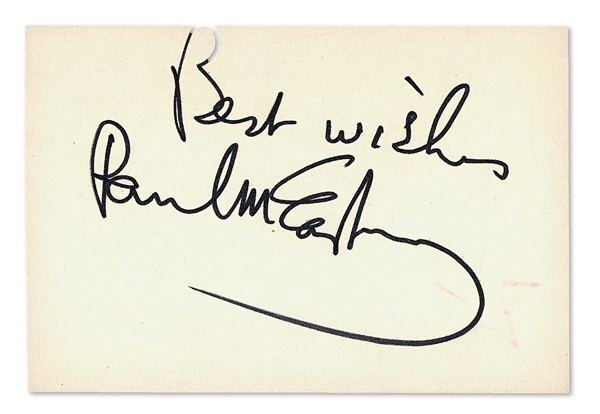 Best wishes
Paul McCartney